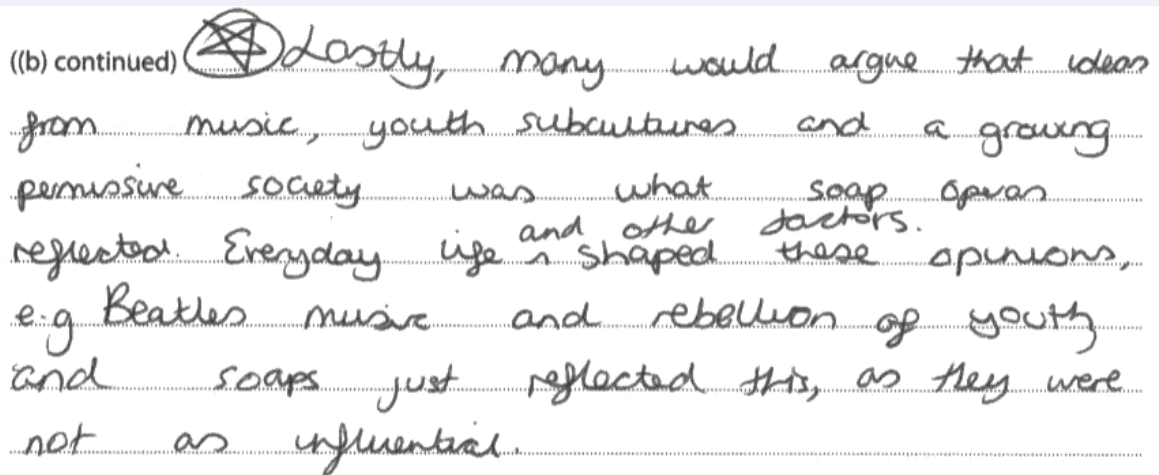 ((b) continued) Lastly, many would argue that ideas
from music, youth subcultures and a growing
permissive society was what soap operas
and other factors.
reflected. Everyday life ^ shaped these opinions,
e.g Beatles music and rebellion of youth
and soaps just reflected this, as they were
not as influential.